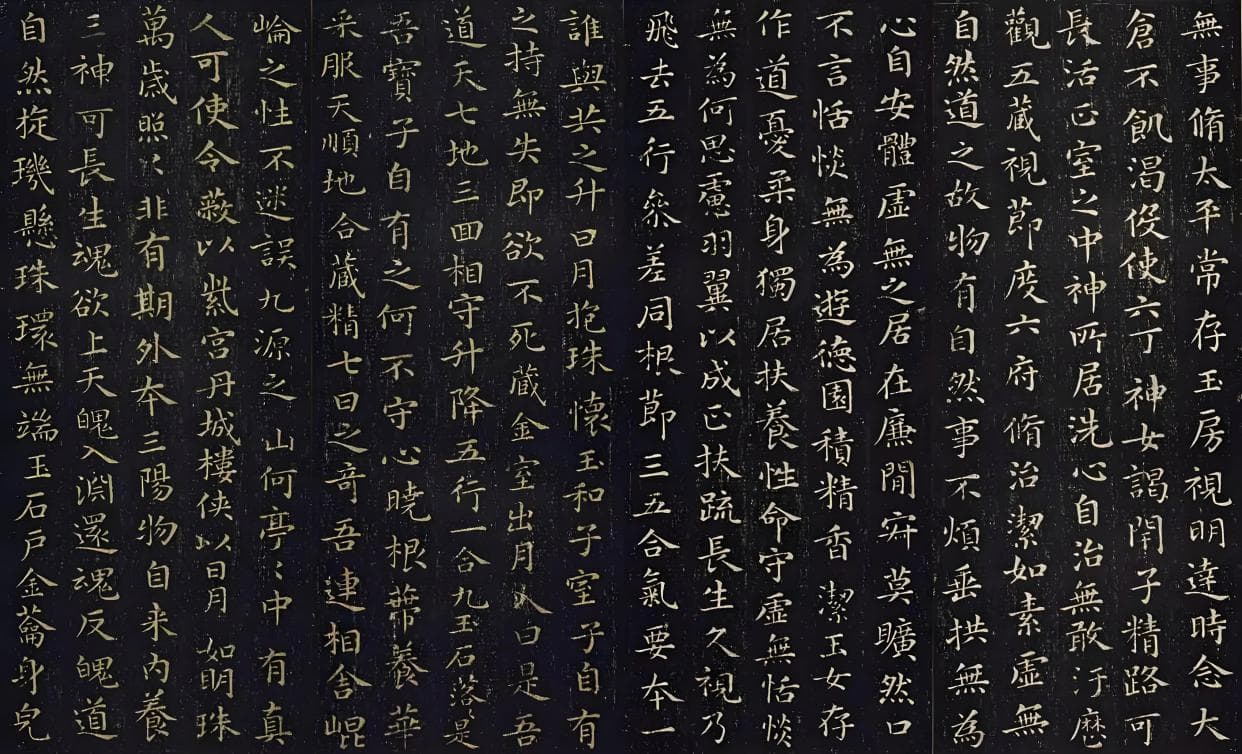 無事脩太平常存玉房視明達時念大
倉不飢渴伇使六丁神女謁閇子精路可
長活正室之中神所居洗心自治無敢汙歷
觀五藏視節度六府脩治潔如素虛無
自然道之故物有自然事不煩垂拱無為
心自安體虛無之居在廉閒𡧯莫曠然口
不言恬惔無為遊德園積精香潔玉女存
作道憂柔身獨居扶養性命守虛無恬惔
無為何思慮羽翼以成正扶疏長生久視乃
飛去五行參差同根節三五合氣要本一
誰與共之升日月抱珠懷玉和子室子自有
之持無失即欲不死藏金室出月入日是吾
道天七地三回相守升降五行一合九玉石落〻是
吾寶子自有之何不守心曉根蔕養華
采服天順地合藏精七日之奇吾連相舍崐
崘之性不迷誤九源之山何亭〻中有真
人可使令蔽以紫宮丹城樓俠以日月如明珠
萬歲照〻非有期外本三陽物自来內養
三神可長生魂欲上天魄入淵還魂反魄道
自然㫌璣懸珠環無端玉石戶金蘥身皃